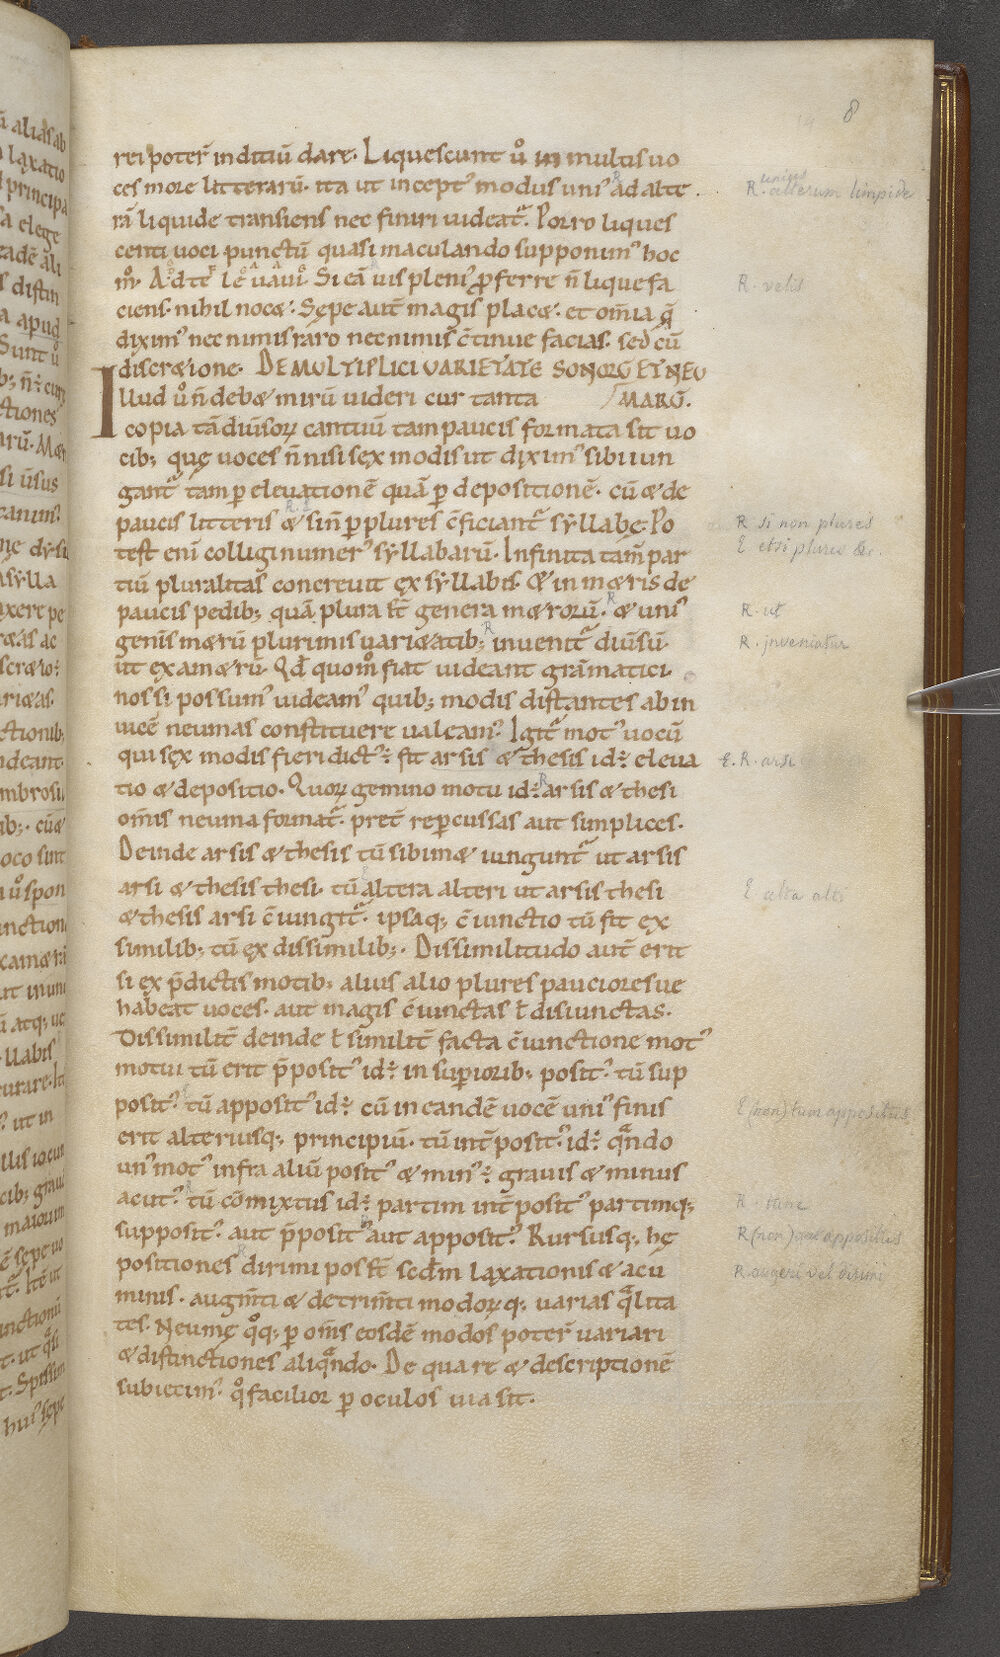 8
rei poter̃ inditiū dare. Liquescunt ů in multis uo
ces more litterarū. ita ut incept᾽ modus uni᾽ ad alte
rā liquide transiens nec finiri uideat᷑. Porro liques
centi uoci punctū quasi maculando supponim᾽ hoc
m̊. Ad te leuaui. Si eā uis pleni᾽ ꝓferre ñ liquefa
ciens. nihil nocæ. Sępe aut̃ magis placæ. et om̃ia q̄
dixim᾽ nec nimis raro nec nimis c̃tinue facias. sed cū
discræione. DE MULTIPLICI VARIETATE SONORŪ ET NEU
Illud ů ñ debæ mirū uideri cur tanta MARŪ.
copia tā diũsoꝝ cantiū tam paucis formata sit uo
cib; quę uoces ñ nisi sex modis ut dixim᾽ sibi iun
gant᷑ tam ꝑ eleuationē quā ꝑ depositionē. cū & de
paucis litteris & si ñ ꝑplures c̃ficiant᷑ syllabę. Po
test eni colligi numer᾽ syllabarū. Infinita tam̃ par
tiū pluralitas concreuit ex syllabis. & in mæris de
paucis pedib; quā plura st̃ genera mærorū. & uni᾽
genĩs mærū plurimis uariæatib; inuent᷑ diũsū.
ut examærū. Qđ quom̊ fiat uideant grāmatici.
nos si possum᾽ uideam᾽ quib; modis distantes ab in
uicē neumas constituere ualeam᾽. Igit᷑ mot᾽ uocū
qui sex modis fieri dict᾽ ÷ fit arsis & thesis id ÷ eleua
tio & depositio. Quoꝝ gemino motu id ÷ arsis & thesi
om̃is neuma format᷑. pret̃ reꝑcussas aut simplices.
Deinde arsis & thesis tū sibimæ iungunt᷑ ut arsis
arsi & thesis thesi. tū altera alteri ut arsis thesi
& thesis arsi c̃iungit᷑. ipsaq; c̃iunctio tū fit ex
similib; tū ex dissimilib;. Dissimilitudo aut̃ erit
si ex p̄dictis motib; alius alio plures paucioresue
habeat uoces. aut magis c̃iunctas ł disiunctas.
Dissimilit̃ deinde ł similit̃ facta c̃iunctione mot᾽
motui tū erit p̄posit᾽ id ÷ in suꝑiorib; posit᾽. tū sup
posit᾽. tū apposit᾽ id ÷ cū in eandē uocē uni᾽ finis
erit alteriusq; principiū. tū int̃posit᾽. id ÷ qᷓndo
un᾽ mot᾽ infra aliū posit᾽ & min᾽ ÷ grauis & minus
acut᾽. tū cōmixtus id ÷ partim int̃posit᾽ partimq;
supposit᾽. aut p̄posit᾽ aut apposit᾽. Rursusq; hę
positiones dirimi poss̃t sed̃m laxationis & acu
minis. augm̃ti & detrim̃ti modoꝝq; uarias qᷓlita
tes. Neumę q̊q; ꝑ om̃s eosdē modos poter̃ uariari
& distinctiones aliqᷓndo. De qua re & descriptionē
subiecim᾽. q̊ facilior ꝑ oculos uia sit.
R. alterum limpide
unius
R. velis
R si non plures
E etsi plures &c.
R. ut
R. inveniatur
E. R. arsi
E alta alti
E (non) tum appositus
R. tunc
R (non) aut appositus
R augeri vel dirimi